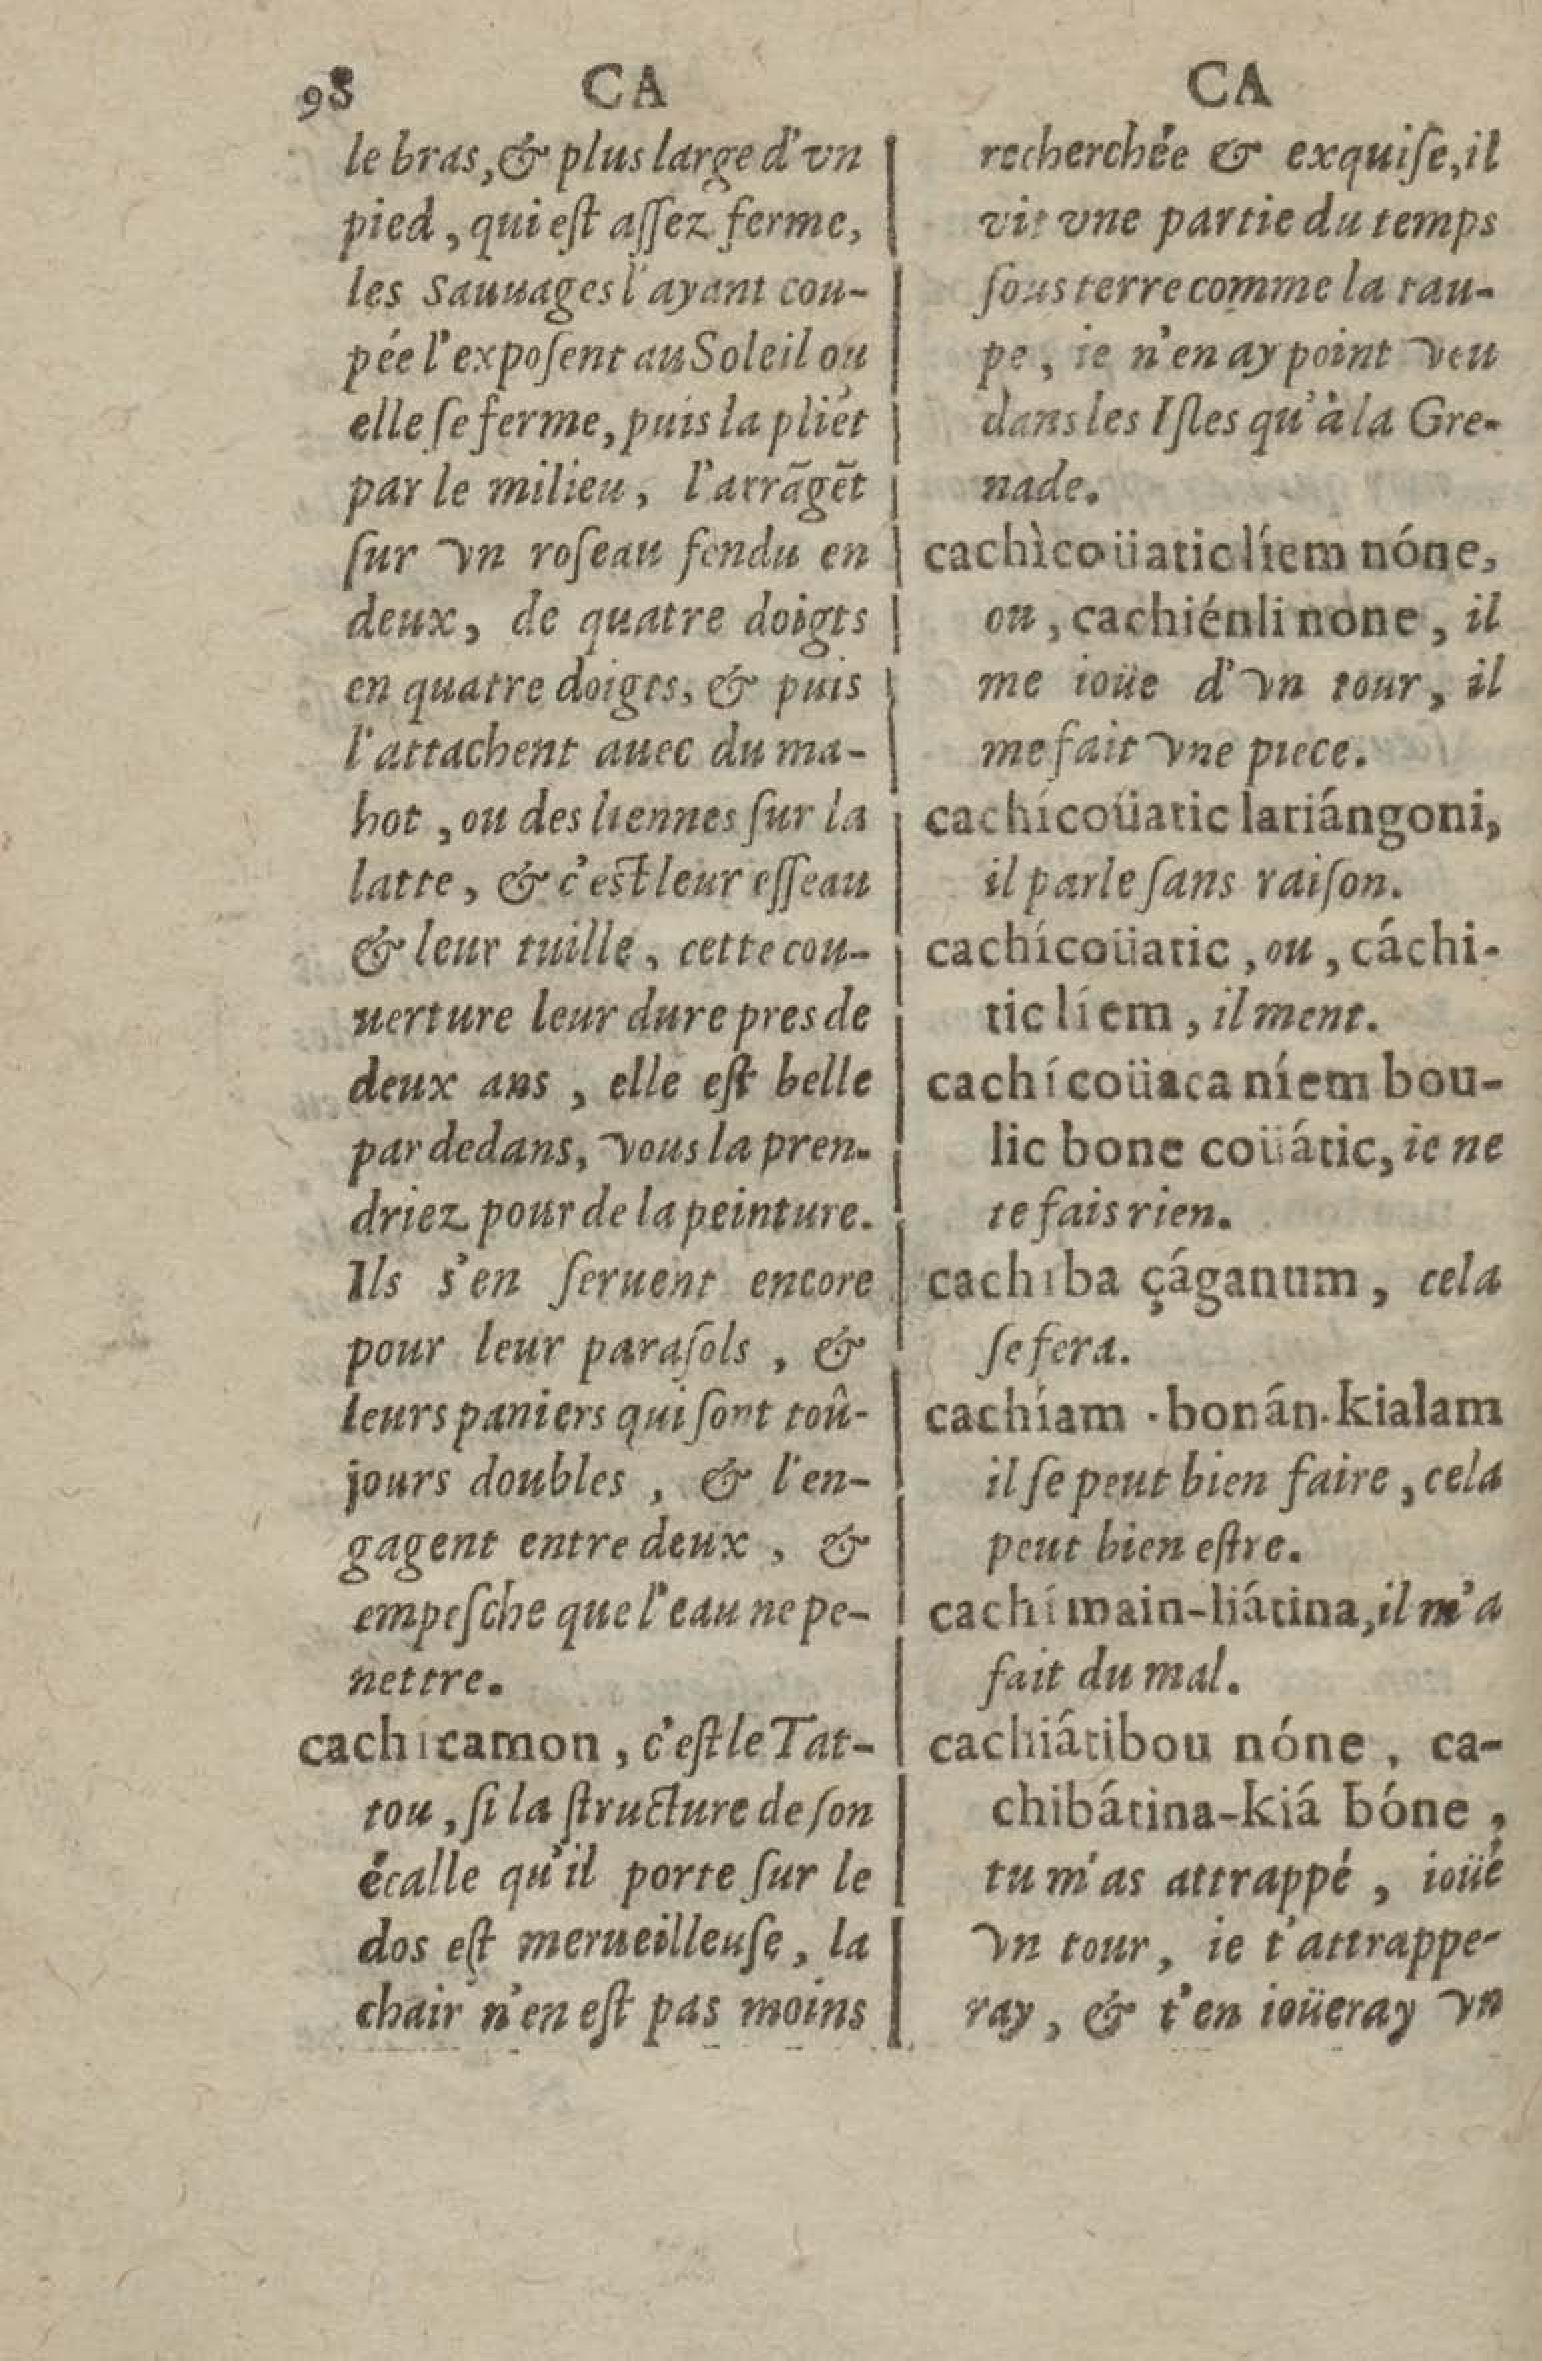 98 CA CA
le bras, & plus large d'vn
pied, qui eſt aſſez ferme,
les Sauuages l'ayant cou-
pée l'expoſent au Soleil ou
elle ſe ferme, puis la pliét
par le milieu, l'arrãgẽt
ſur vn roſeau fendu en
deux, de quatre doigts
en quatre doigts, & puis
l'attachent auec du ma-
hot, ou des liennes ſur la
latte, & c'eſt leur eſſeau
& leur tuille, cette cou-
uerture leur dure pres de
deux ans, elle eſt belle
par dedans, vous la pren-
driez pour de la peinture.
Ils s'en ſeruent encore
pour leur paraſols, &
leurs paniers qui ſont toû-
jours doubles, & l'en-
gagent entre deux, &
empeſche que l'eau ne pe-
nettre.
cachicamon, c'eſt le Tat-
tou, ſi la ſtructure de ſon
écalle qu'il porte ſur le
dos eſt merueilleuſe, la
chair n'en eſt pas moins
recherchée & exquiſe, il
vit vne partie du temps
ſous terre comme la tau-
pe, ie n'en ay point veu
dans les Iſles qu'à la Gre-
nade.
cachìcoüatic líem nóne,
ou, cachiénli none, il
me ioüe d'vn tour, il
me fait vne piece.
cachícoüatic lariángoni,
il parle ſans raiſon.
cachícoüatic, ou, cáchi-
tic líem, il ment.
cachícoüaca níem bou-
lic bone coüátic, ie ne
te fais rien.
cachiba çáganum, cela
ſe fera.
cachíam-bonán-kialam
il ſe peut bien faire, cela
peut bien eſtre.
cachímain-liátina, il m'a
fait du mal.
cachiátibou nóne, ca-
chibátina-kiá bóne,
tu m'as attrappé, ioüé
vn tour, ie t'attrappe-
ray, & t'en ioüeray vn